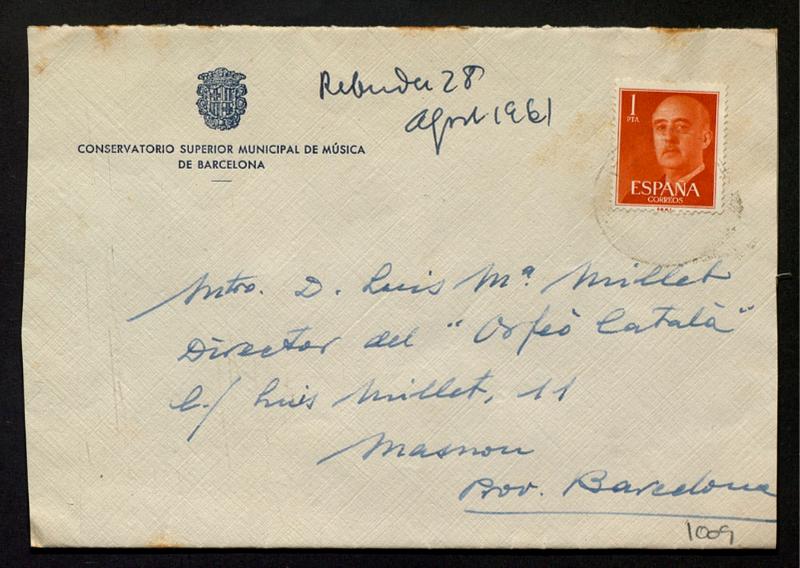 CONSERVATORIO SUPERIOR MUNICIPAL DE MÚSICA
DE BARCELONA
Rebuda 28
Agost 1961
1
PTA
ESPAÑA
CORREOS
Mtro. D. Luis Mª Millet
Director del "Orfeó Català"
C./ Luis Millet, 11
Masnou
Prov. Barcelona
1009